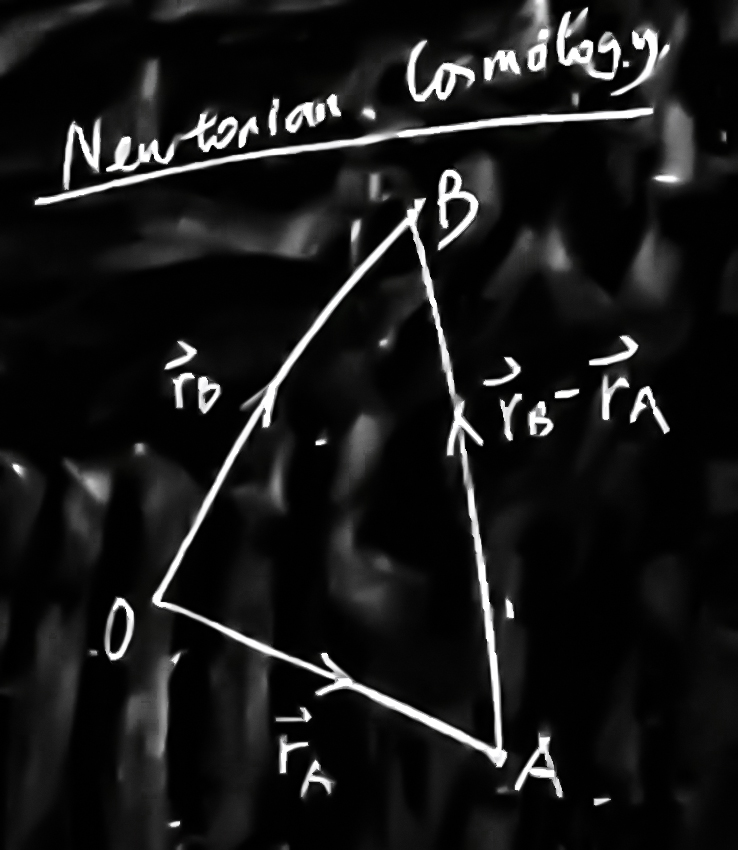 Newtonian. Cosmology.
B
r⃗B
r⃗B - r⃗A
O
r⃗A
A